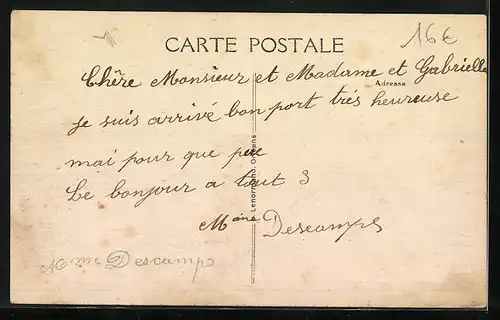 16€
CARTE POSTALE
Chêre Monsieur et Madame et Gabrielle
Adresse
je suis arrivé bon port trés heureuse
mai pour que peu
Le bonjour a tout 3
Lenormand, Orléans
Descamps
Mme Descamps